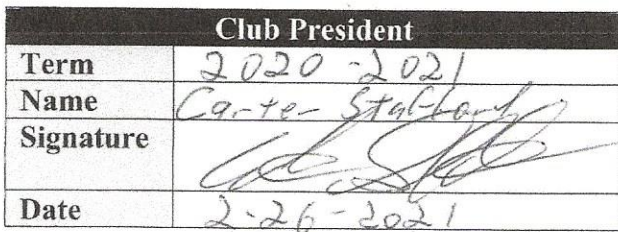 Club President
Term 2020-2021
Name Carter
Signature
Date 2-26-2021